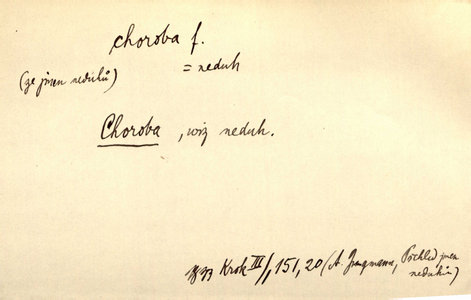 choroba f.
= neduh
(ze jmen neduhů)
Choroba, wiz neduh.
Krok III/1, 151, 20 (A. Jungmann, Pòehled jmen
neduhů)